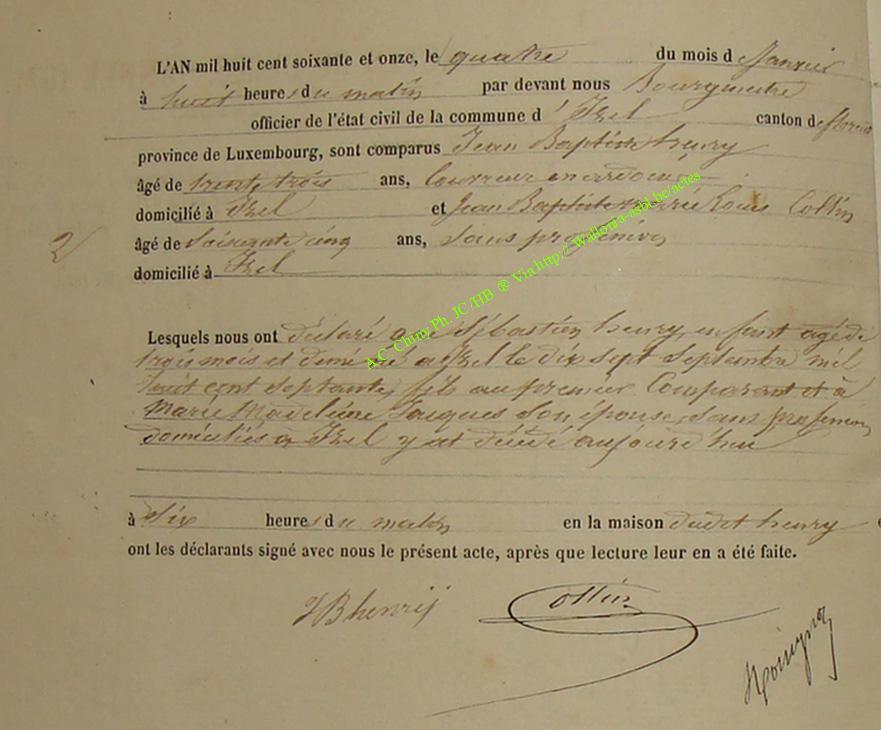 L'AN mil huit cent soixante et onze, le quatre du mois d e Janvier
à huit heures du matin par devant nous Bourgmestre
officier de l'état civil de la commune d 'Izel canton de florenville
province de Luxembourg, sont comparus Jean Baptiste henry
âgé de trente trois ans, Couvreur en ardoises
domicilié à Izel et Jean Baptiste Louis Collin
2 âgé de soixante cinq ans, sans profession
domicilié à Izel
A.C. Chiny Ph. JC/HB ® Via http://wallonia-asbl.be/actes
Lesquels nous ont déclaré que Sébastien henry, enfant agé de
trois mois et demi né a Izel le dix sept Septembre mil
huit cent septante, fils au premier Comparant et à
Marie Madeleine Jaques son épouse, sans profession
domiciliés à Izel y est décédé aujourd'hui
à Six heures du matin en la maison dudit henry
ont les déclarants signé avec nous le présent acte, après que lecture leur en a été faite.
JB henrij Collin